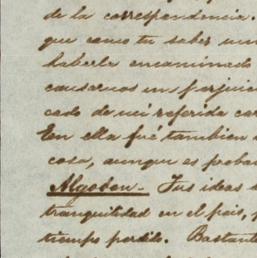 de la correspondencia.
que como tu saber
haberla encaminado
causarnos un perjuicio
cado de mi referida car
En ella fué tambien
cosa, aunque es probab
Algoben.- Tus ideas
tranquilidad en el pais,
tiempo perdido. Bastante